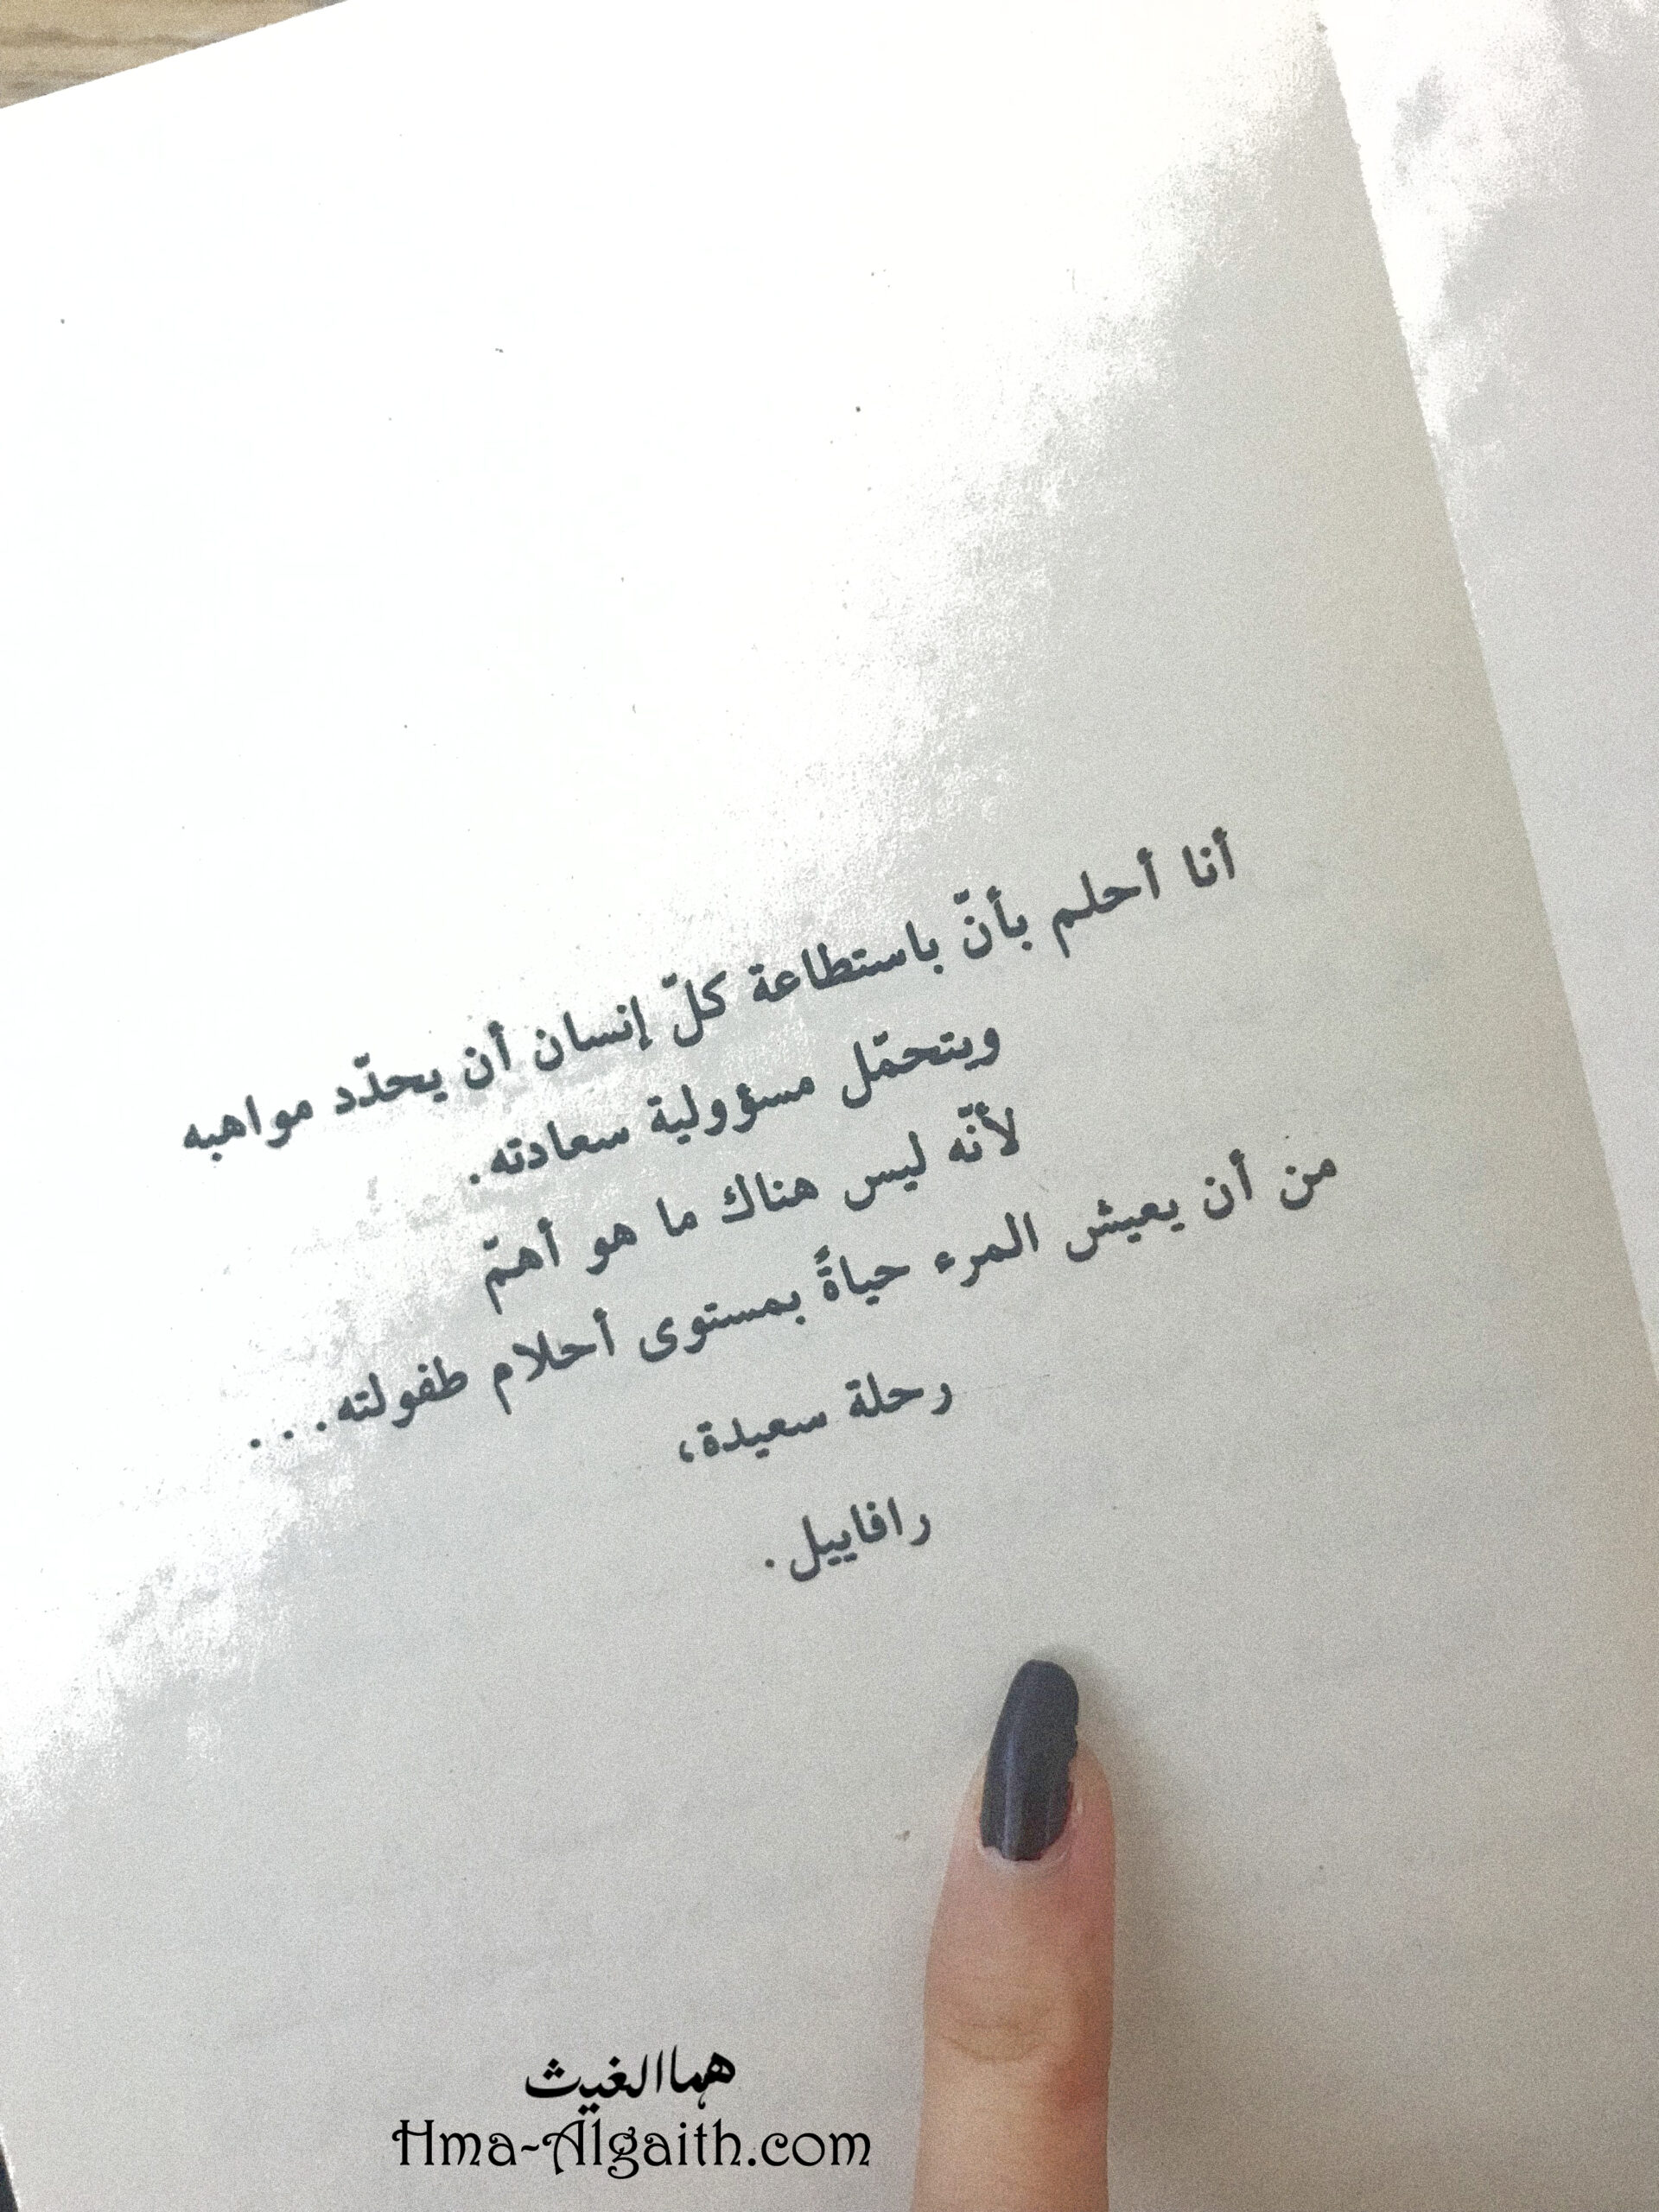 أنا أحلم بأنّ باستطاعة كلّ إنسان أن يحدّد مواهبه
ويتحمّل مسؤولية سعادته.
لأنّه ليس هناك ما هو أهمّ
من أن يعيش المرء حياةً بمستوى أحلام طفولته...
رحلة سعيدة،
رافاييل.
هما الغيث
Hma-Algaith.com